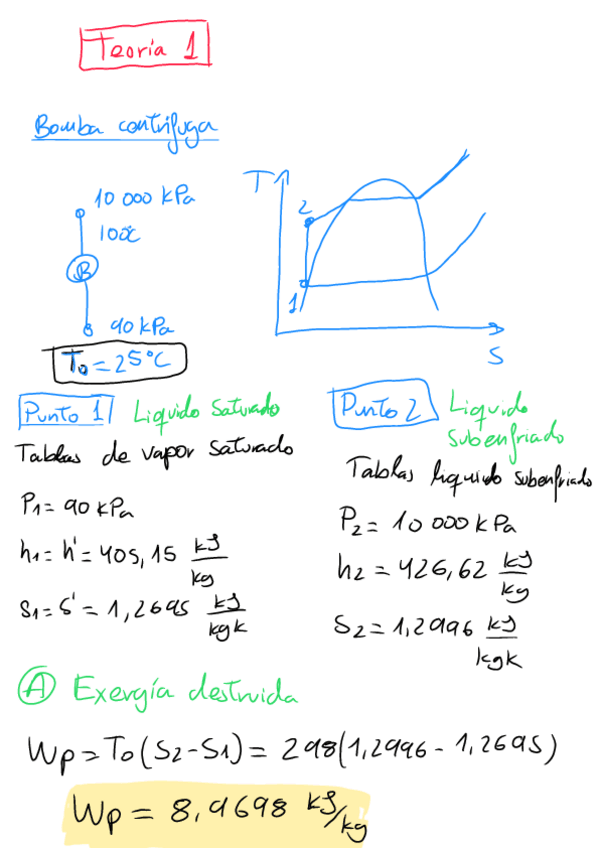 Teoría 1
Bomba centrífuga
10 000 kPa
100°C
B
90 kPa
T₀ = 25°C
T
2
1
S
Punto 1 Liquido Saturado
Tablas de vapor saturado
P₁ = 90 kPa
h₁ = h' = 405,15 kJ/kg
s₁ = s' = 1,2695 kJ/kgK
Punto 2 Liquido subenfriado
Tablas liquido subenfriado
P₂ = 10 000 kPa
h₂ = 426,62 kJ/kg
S₂ = 1,2996 kJ/kgK
A Exergía destruida
Wp = T₀(S₂-S₁) = 298(1,2996 - 1,2695)
Wp = 8,9698 kJ/kg